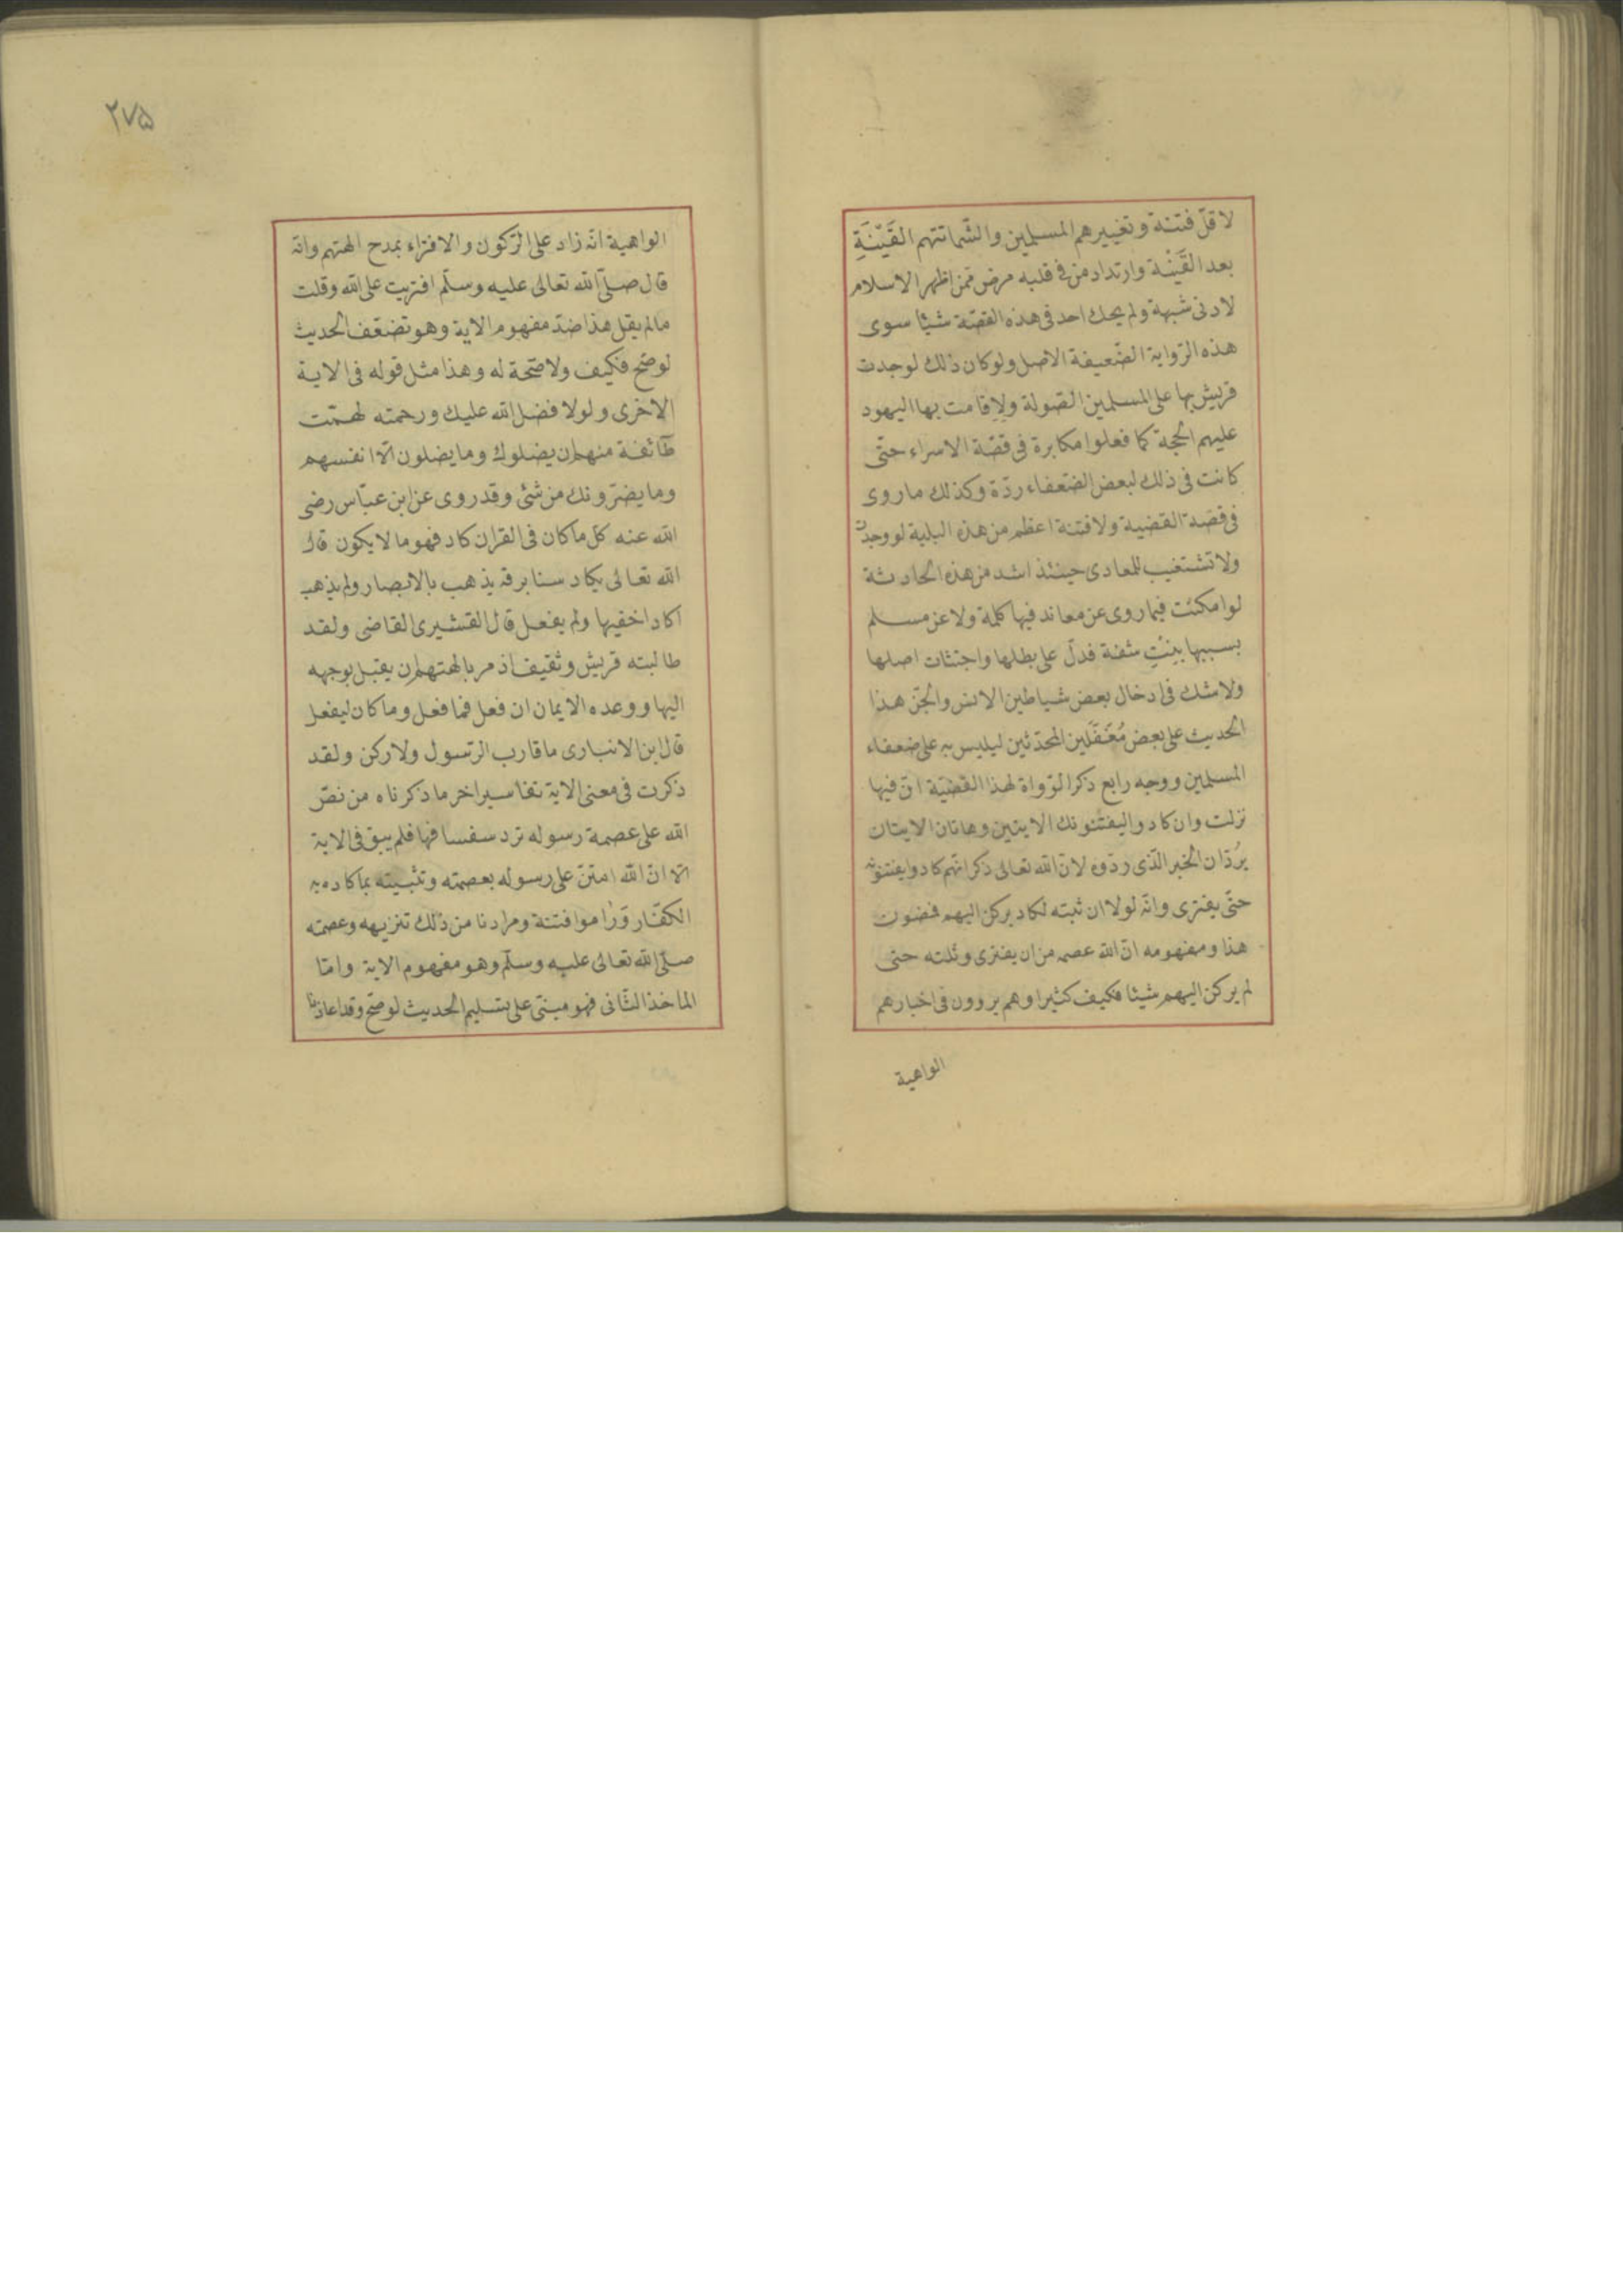 لاقل فتنة وتغييرهم المسلمين والشماتتهم الفَيْنَةِ
بعد الفَيْنَة وارتداد من فى قلبه مرض ممن اظهر الاسلام
لادنى شبهة ولم يحك احد فى هذه القصّة شيئا سوى
هذه الرّواية الضّعيفة الاصل ولو كان ذلك لوجدت
قريش بها على المسلمين الصّولة ولاقامت بها اليهود
عليهم الحجة كما فعلوا مكابرة فى قصّة الاسراء حتّى
كانت فى ذلك لبعض الضعفاء ردّة وكذلك ما روى
فى قصّة القضية ولا فتنة اعظم من هذه البلية لو وجدت
ولا تشتغيب للمعادى حينئذ اشد من هذه الحادثة
لو امكنت فيما روى عن معاند فيها كلمة ولا عن مسلم
بسببها بِنْتِ شفة فدلّ على بطلها واجتثاث اصلها
ولا شك فى ادخال بعض شياطين الانس والجنّ هذا
الحديث على بعض مُغَفَّلين المحدّثين ليلبس به على ضعفاء
المسلمين ووجه رابع ذكر الرّواة لهذا القضيّة انّ فيها
نزلت وان كادوا ليفتنونك الايتين وهاتان الايتان
يُردّان الخبر الّذى ردّوه لانّ الله تعالى ذكر انّهم كادوا يفتنونه
حتّى يفترى وانّه لولا ان ثبته لكاد يركن اليهم فمضون
هذا ومفهومه انّ الله عصمه من ان يفترى وثبته حتى
لم يركن اليهم شيئا فكيف كثيرا وهم يروون فى اخبارهم
الواهية
٢٧٥
الواهية انّه زاد على الرّكون والافتراء بمدح الهتهم وانّه
قال صلّى الله تعالى عليه وسلّم افتريت على الله وقلت
مالم يقل هذا ضدّ مفهوم الاية وهو تضعّف الحديث
لوصّح فكيف ولا صّحة له وهذا مثل قوله فى الاية
الاخرى ولولا فضل الله عليك ورحمته لهمّت
طآئفة منهم ان يضلوك وما يضلون الّا انفسهم
وما يضرّونك من شئ وقد روى عن ابن عبّاس رضى
الله عنه كل ما كان فى القران كاد فهو ما لا يكون قال
الله تعالى يكاد سنا برقه يذهب بالابصار ولم يذهب
اكاد اخفيها ولم يفعل قال القشيرى القاضى ولقد
طالبته قريش وثقيف اذ مر بالهتهم ان يقبل بوجهه
اليها ووعده الايمان ان فعل فما فعل وما كان ليفعل
قال ابن الانبارى ما قارب الرّسول ولا ركن ولقد
ذكرت فى معنى الاية تفاسير اخر ما ذكرناه من نصّ
الله على عصمة رسوله ترد سفسافها فلم يبق فى الاية
الّا انّ الله امتنّ على رسوله بعصمته وتثبيته بما كاده به
الكفّار وَرٰاموا فتنة ومرادنا من ذلك تنزيهه وعصمته
صلّى الله تعالى عليه وسلّم وهو مفهوم الاية وامّا
الماخذ الثّانى فهو مبنىّ على تسليم الحديث لوصّح وقد اعاذنا